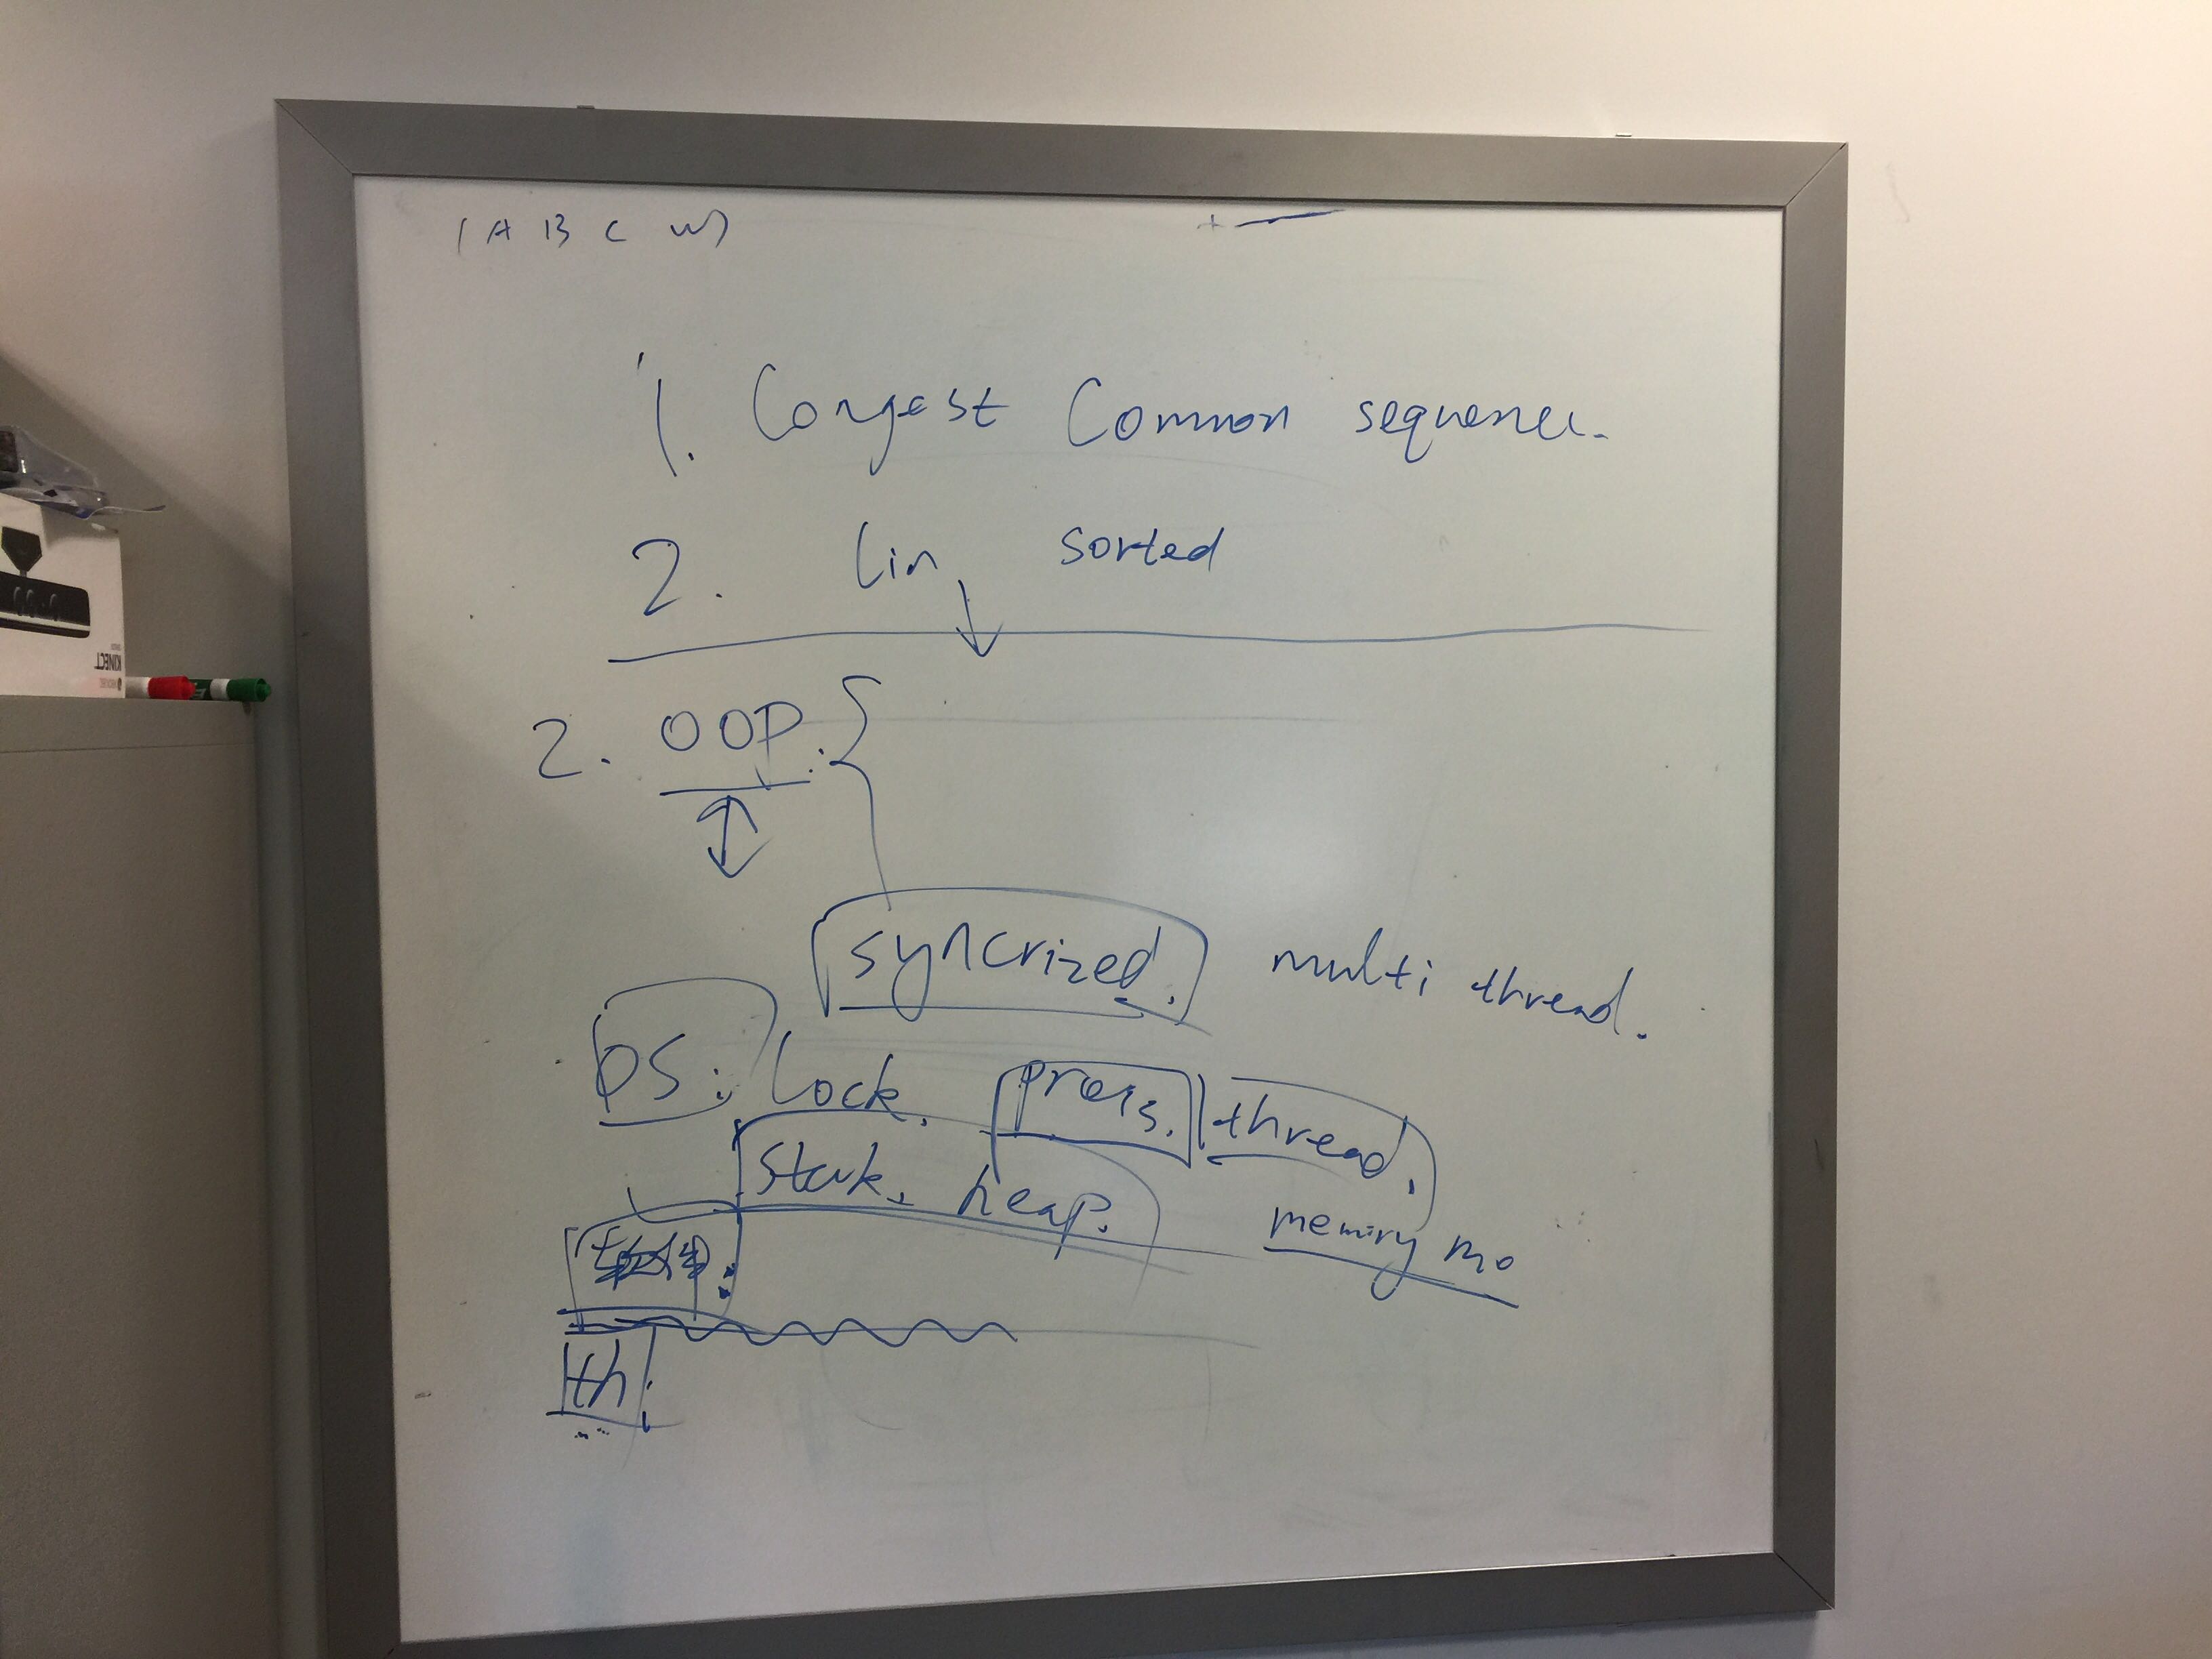 (A B C W)
1. Longest Common sequence.
2. Lin sorted
2. OOP:
syncrized. multi thread.
OS: Lock. process. thread.
Stack, heap. memiry mo
th:
KINECT